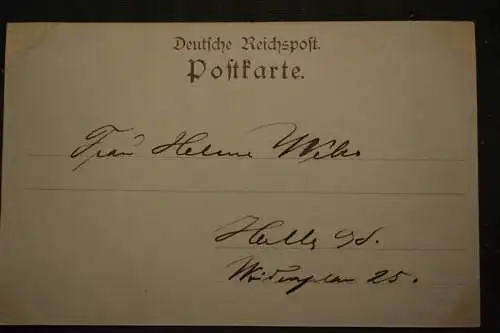 Deutsche Reichspost.
Postkarte.
Frau Helene Weber
Halle S/d.
Weidenplan 25.